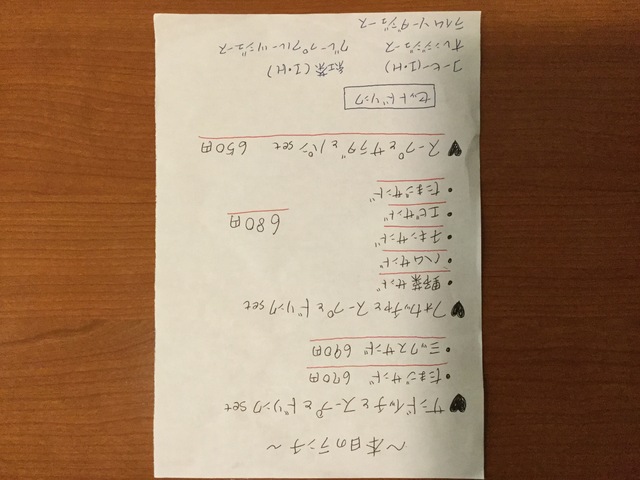 ~本日のランチ~
♥ サンドイッチとスープとドリンクset
・たまごサンド 670円
・ミックスサンド 690円
♥ フォカッチャとスープとドリンクset
・野菜サンド
・ハムサンド
・チキンサンド
・エビサンド 680円
・たまごサンド
♥ スープとサラダとパンset 650円
セットドリンク
コーヒー(I・H) 紅茶(I・H)
オレンジジュース グレープフルーツジュース
ライムソーダジュース